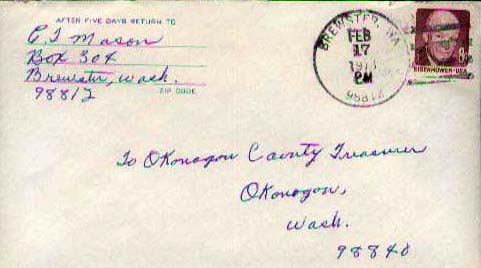 AFTER FIVE DAYS RETURN TO
C J Mason
Box 304
Brewster, Wash.
98812
ZIP CODE
BREWSTER, WA
FEB
17
PM
98812
8c
EISENHOWER·USA
To Okonogon County Treasurer
Okonogon,
Wash.
98840